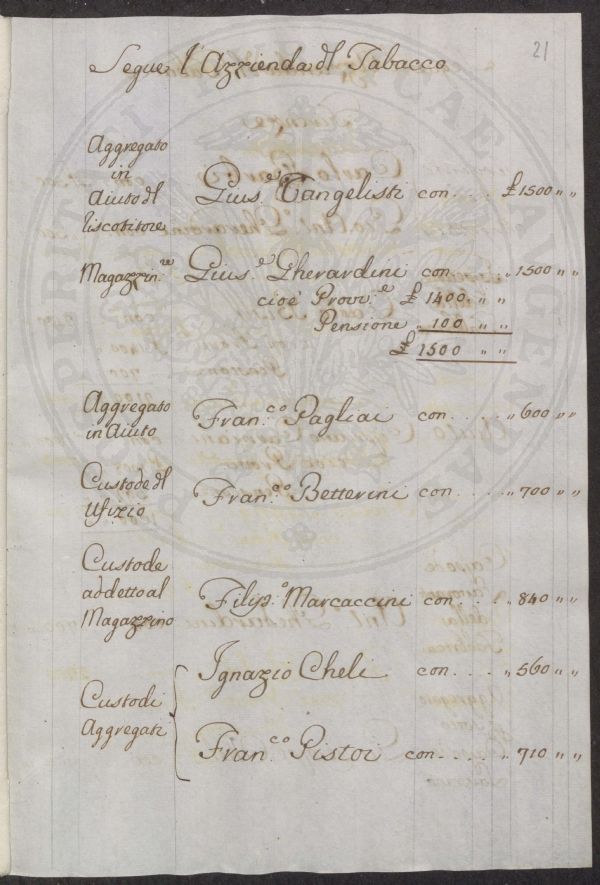 21
Segue l'Azzienda dl Tabacco
Aggregato
in
aiuto dl
Riscotitore
Gius.e Vangelisti con.... £ 1500 " "
Magazzin.re Gius.e Gherardini con.... " 1500 " "
cioè Provv.e £ 1400 " "
Pensione " 100 " "
£ 1500 " "
Aggregato
in aiuto
Fran.co Pagliai con..... " 600 " "
Custode dl
Ufizio
Fran.co Betterini con.... " 700 " "
Custode
addetto al
Magazzino
Filip.o Marcaccini con.... " 840 " "
Custodi
Aggregati
Ignazio Cheli con.... " 560 " "
Fran.co Pistoi con..... " 710 " "